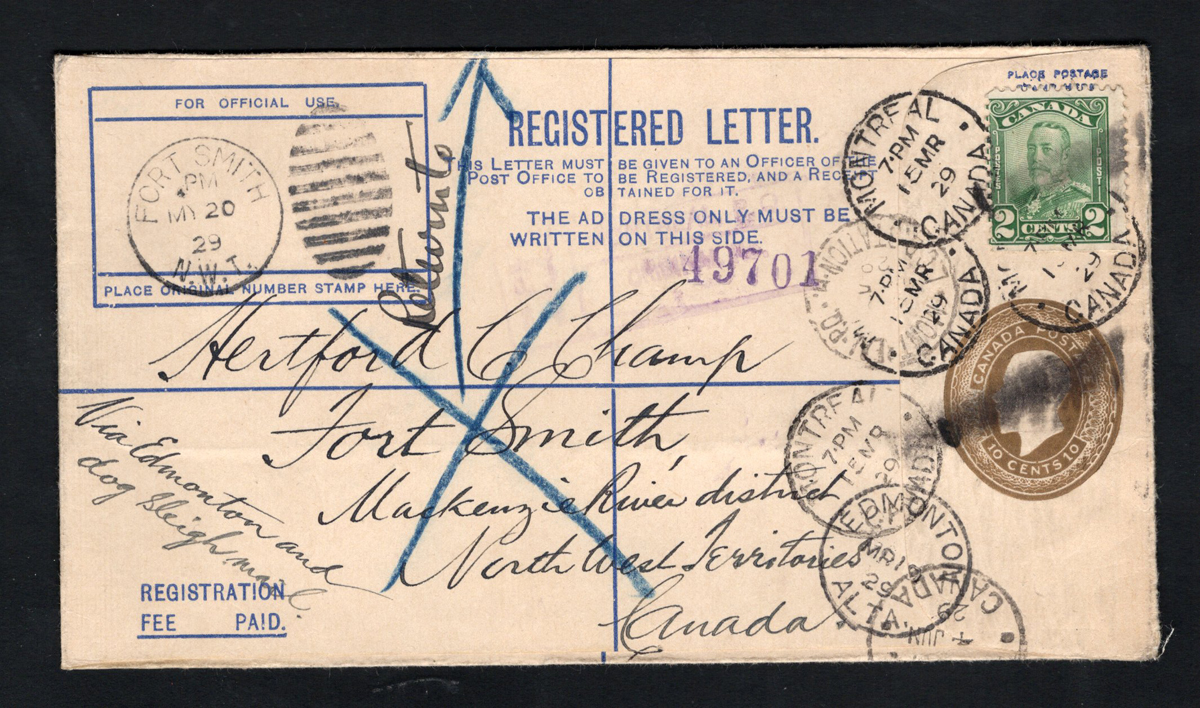 FOR OFFICIAL USE
FORT SMITH
PM
MY 20
29
N.W.T.
PLACE ORIGINAL NUMBER STAMP HERE.
REGISTERED LETTER.
THIS LETTER MUST BE GIVEN TO AN OFFICER OF THE
POST OFFICE TO BE REGISTERED, AND A RECEIPT
OBTAINED FOR IT.
THE ADDRESS ONLY MUST BE
WRITTEN ON THIS SIDE.
49701
PLACE POSTAGE
CANADA
POSTES
POST
2 CENTS 2
MONTREAL
7 PM
15 MR
29
CANADA
7 PM
15 MR
29
CANADA
29
CANADA
CANADA POSTAGE
10 CENTS 10
MONTREAL
7 PM
15 MR
29
CANADA
EDMONTON
MR 18
29
ALTA.
CANADA
4 JUN
29
Return to
Hertford C Champ
Fort Smith,
Mackenzie River district
North West Territories
Canada
Via Edmonton and
dog sleigh mail.
REGISTRATION
FEE PAID.